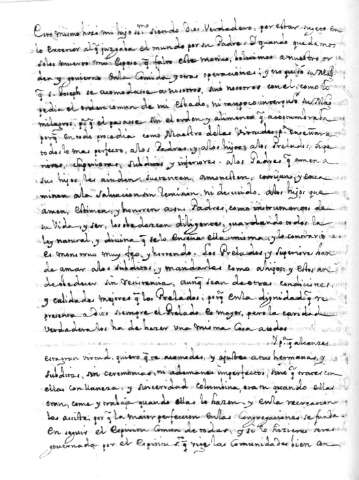 Esto mismo hizo mi hijo s.mo siendo Dios Verdadero, por estar sujeto en
lo exterior al q juzgava el mundo por su Padre. Y quando quedamos
solos muerto mi esposo, q falto este motivo, bolvimos a nuestro or
den y govierno en la comida, y otras operaciones; y no quiso su Mag.
q S. Joseph se acomodase a nosotros, sino nosotros con el, como lo
pedia el orden comun de mi Estado, ni tampoco
milagros, p.a q el pasase sin el orden y alimento q acostumbraba
porq en todo procedia como Maestro de las Virtudes p.a enseñar a
todos lo mas perfecto, a los Padres, y a los hijos, a los Prelados, Supe
riores, e Inferiores, Subditos y inferiores. A los Padres q amen a
sus hijos, les aiuden, sustenten, amonesten, corrijan, y enca
minen a la salvacion sin remision, ni descuido. A los hijos que
amen, estimen, y honrren a sus Padres, como instrumentos de
su Vida, y ser, los obedezcan diligentes, guardando todos la
ley natural, y divina q se lo enseña ella misma, y lo contrario
es monstruo muy feo, y horrendo. Los Prelados y Superiores han
de amar a los subditos, y mandarles como a hijos, y ellos an
de obedecer sin resistencia, aunq sean de otras condiciones,
y calidades mejores q los Prelados, porq en la dignidad q re
presenta a Dios siempre el Prelado es mayor, pero la caridad
Verdadera los ha de hazer una misma cosa a todos
Y p.a q alcances
esta gran virtud, quiero q te acomodes, y ajustes a tus hermanas, y
subditas, sin ceremonias, ni ademanes imperfectos, sino q trates con
ellas con llaneza, y sinceridad colombina, ora tu quando ellas
oran, come y trabaja quando ellas lo hazen, y en la recreacion
las asiste, por q la maior perfeccion en las Congregaciones se funda
en seguir el espiritu comun de todas, y si lo hizieres seras
governada por el Espiritu S.to q rige las Comunidades bien